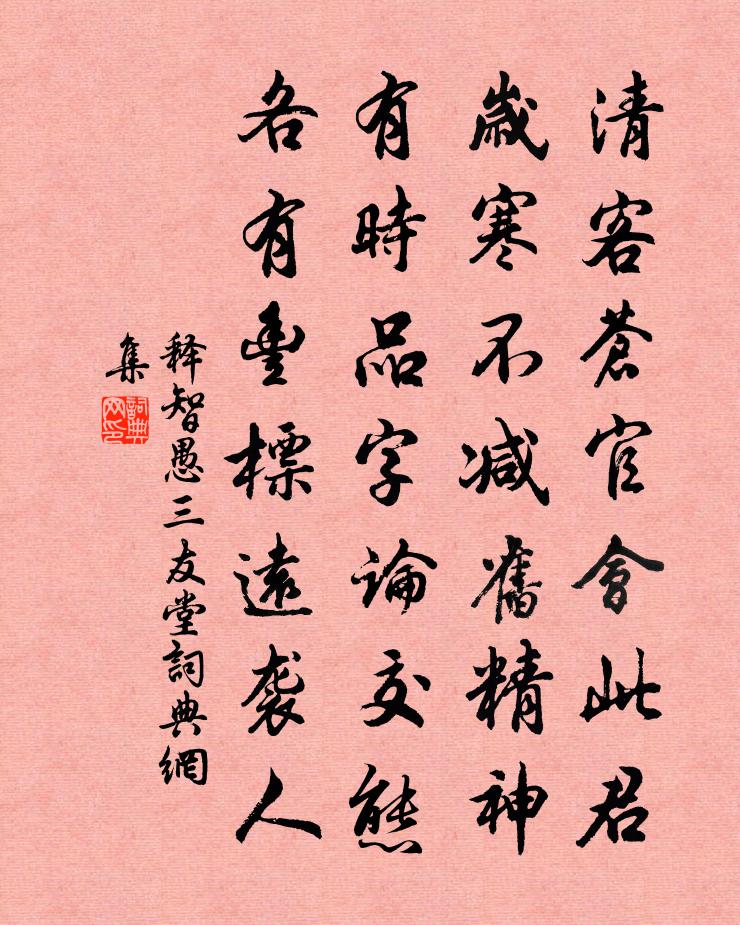 清客蒼官會此君
歲寒不減舊精神
有時品字論交態
各有豐標遠袭人
释智愚三友堂詞典網
集
詞典网印